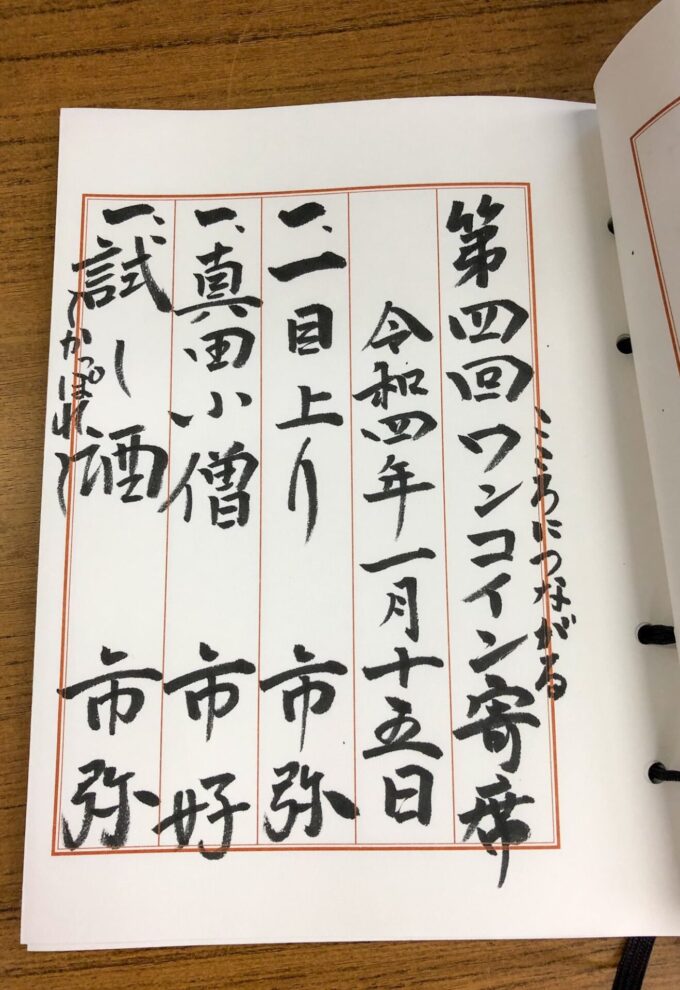 こころにつながる
第四回ワンコイン寄席
令和四年一月十五日
一、一目上り 市弥
一、真田小僧 市好
一、試し酒 市弥
〜かっぽれ〜